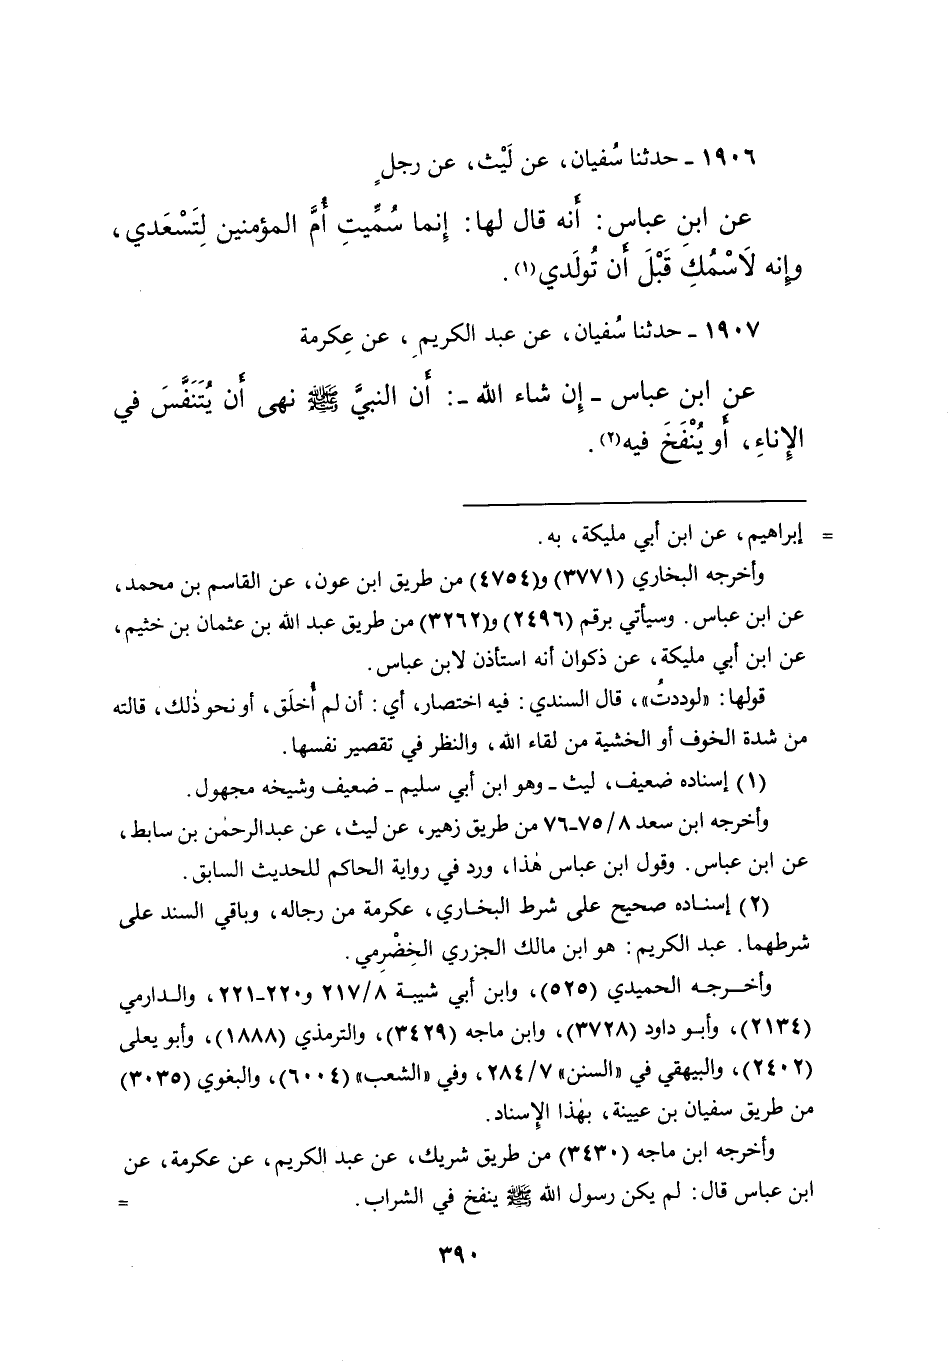 ١٩٠٦ - حدثنا سُفيان، عن لَيْث، عن رجلٍ
عن ابنِ عباس: أَنه قال لها: إِنما سُمِّيتِ أُمَّ المؤمنين لِتَسْعَدي،
وإِنه لَاسْمُكِ قَبْلَ أَن تُولَدي(١).
١٩٠٧ - حدثنا سُفيان، عن عبد الكريمِ، عن عِكرمة
عن ابن عباس - إِن شاء الله -: أَن النبيَّ ﷺ نهى أَن يُتَنَفَّسَ في
الإِناءِ، أَو يُنْفَخَ فيه(٢).
= إبراهيم، عن ابن أبي مليكة، به.
وأخرجه البخاري (٣٧٧١) و(٤٧٥٤) من طريق ابن عون، عن القاسم بن محمد،
عن ابن عباس. وسيأتي برقم (٢٤٩٦) و(٣٢٦٢) من طريق عبد الله بن عثمان بن خثيم،
عن ابن أبي مليكة، عن ذكوان أنه استأذن لابن عباس.
قولها: «لوددتُ»، قال السندي: فيه اختصار، أي: أن لم أُخلَق، أو نحو ذٰلك، قالته
من شدة الخوف أو الخشية من لقاء الله، والنظر في تقصير نفسها.
(١) إسناده ضعيف، ليث - وهو ابن أبي سليم - ضعيف وشيخه مجهول.
وأخرجه ابن سعد ٧٥/٨-٧٦ من طريق زهير، عن ليث، عن عبدالرحمٰن بن سابط،
عن ابن عباس. وقول ابن عباس هٰذا، ورد في رواية الحاكم للحديث السابق.
(٢) إسناده صحيح على شرط البخاري، عكرمة من رجاله، وباقي السند على
شرطهما. عبد الكريم: هو ابن مالك الجزري الخِضْرمي.
وأخرجه الحميدي (٥٢٥)، وابن أبي شيبة ٢١٧/٨ و٢٢٠-٢٢١، والدارمي
(٢١٣٤)، وأبو داود (٣٧٢٨)، وابن ماجه (٣٤٢٩)، والترمذي (١٨٨٨)، وأبو يعلى
(٢٤٠٢)، والبيهقي في «السنن» ٢٨٤/٧، وفي «الشعب» (٦٠٠٤)، والبغوي (٣٠٣٥)
من طريق سفيان بن عيينة، بهٰذا الإسناد.
وأخرجه ابن ماجه (٣٤٣٠) من طريق شريك، عن عبد الكريم، عن عكرمة، عن
ابن عباس قال: لم يكن رسول الله ﷺ ينفخ في الشراب. =
٣٩٠